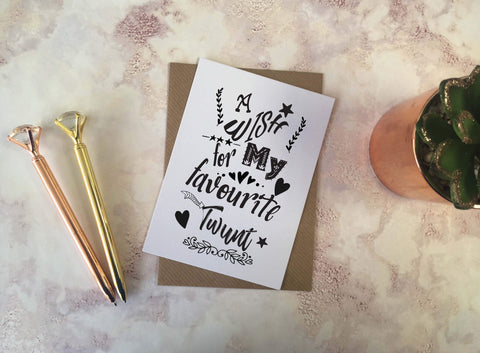 A
WISH
for My
favourite
Twunt